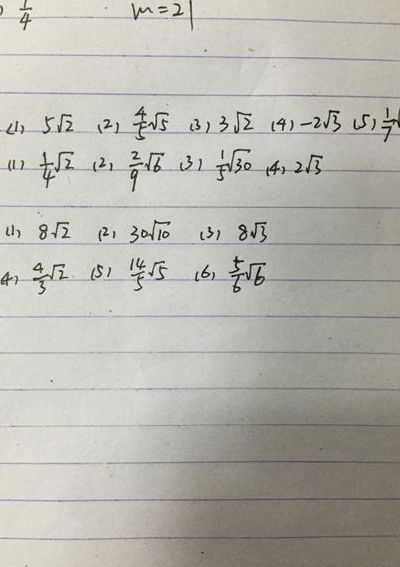 ) 1/4 m=21
(1) 5√2 (2) 4/5√5 (3) 3√2 (4) -2√3 (5) 1/7√
(1) 1/4√2 (2) 2/9√6 (3) 1/5√30 (4) 2√3
(1) 8√2 (2) 30√10 (3) 8√3
(4) 4/3√2 (5) 14/5√5 (6) 5/6√6